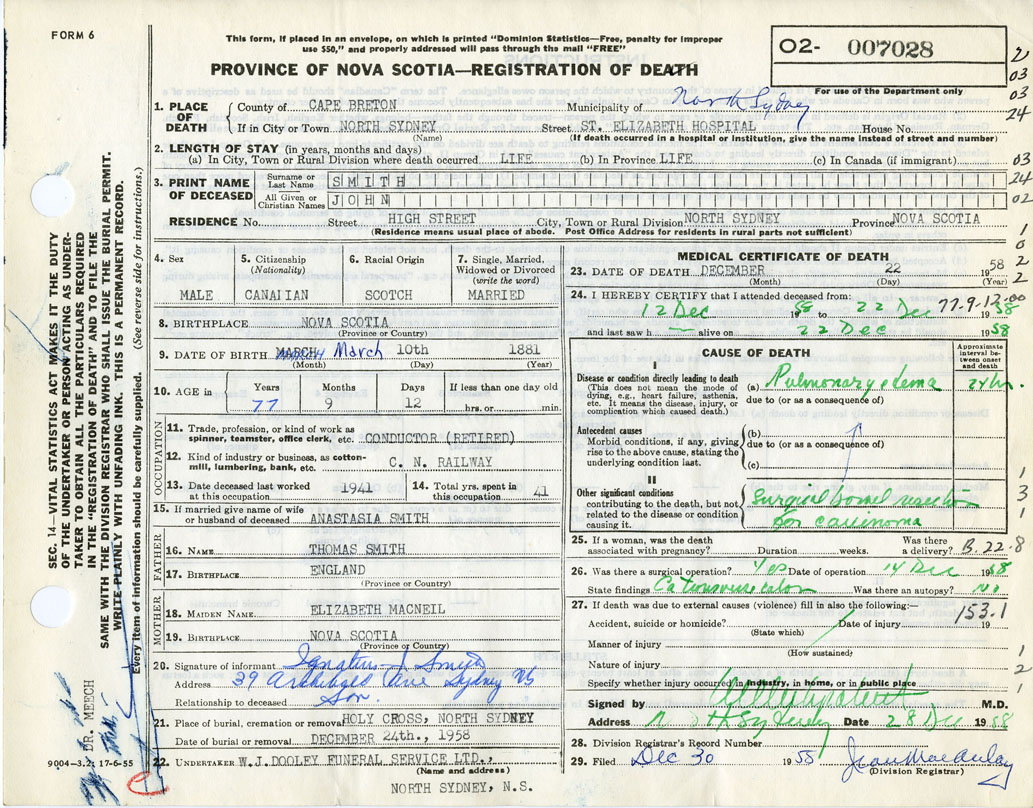 FORM 6
This form, if placed in an envelope, on which is printed "Dominion Statistics—Free, penalty for improper
use $50," and properly addressed will pass through the mail "FREE"
PROVINCE OF NOVA SCOTIA—REGISTRATION OF DEATH
02- 007028
For use of the Department only
1. PLACE OF DEATH
County of CAPE BRETON Municipality of North Sydney
If in City or Town NORTH SYDNEY Street ST. ELIZABETH HOSPITAL House No.
(Name) (If death occurred in a hospital or institution, give the name instead of street and number)
2. LENGTH OF STAY (in years, months and days)
(a) In City, Town or Rural Division where death occurred LIFE (b) In Province LIFE (c) In Canada (if immigrant)
3. PRINT NAME OF DECEASED
Surname or Last Name SMITH
All Given or Christian Names JOHN
RESIDENCE No. Street HIGH STREET City, Town or Rural Division NORTH SYDNEY Province NOVA SCOTIA
(Residence means usual place of abode. Post Office Address for residents in rural parts not sufficient)
4. Sex
MALE
5. Citizenship
(Nationality)
CANAIIAN
6. Racial Origin
SCOTCH
7. Single, Married,
Widowed or Divorced
(write the word)
MARRIED
8. BIRTHPLACE NOVA SCOTIA
(Province or Country)
9. DATE OF BIRTH MARCH March 10th 1881
(Month) (Day) (Year)
10. AGE in
Years Months Days If less than one day old
77 9 12 hrs. or min.
OCCUPATION
11. Trade, profession, or kind of work as
spinner, teamster, office clerk, etc. CONDUCTOR (RETIRED)
12. Kind of industry or business, as cotton-
mill, lumbering, bank, etc. C. N. RAILWAY
13. Date deceased last worked
at this occupation 1941
14. Total yrs. spent in
this occupation 41
15. If married give name of wife
or husband of deceased ANASTASIA SMITH
FATHER
16. NAME THOMAS SMITH
17. BIRTHPLACE ENGLAND
(Province or Country)
MOTHER
18. MAIDEN NAME ELIZABETH MACNEIL
19. BIRTHPLACE NOVA SCOTIA
(Province or Country)
20. Signature of informant Ignatius J Smith
Address 39 Archibald Ave Sydney NS
Relationship to deceased Son
21. Place of burial, cremation or removal HOLY CROSS, NORTH SYDNEY
Date of burial or removal DECEMBER 24th., 1958
22. UNDERTAKER W.J.DOOLEY FUNERAL SERVICE LTD.,
(Name and address)
NORTH SYDNEY, N.S.
MEDICAL CERTIFICATE OF DEATH
23. DATE OF DEATH DECEMBER 22 1958
(Month) (Day) (Year)
24. I HEREBY CERTIFY that I attended deceased from:
77.9.12.00
12 Dec 1958 to 22 Dec 1958
and last saw h alive on 22 Dec 1958
CAUSE OF DEATH
Approximate interval between onset and death
I
Disease or condition directly leading to death
(This does not mean the mode of
dying, e.g., heart failure, asthenia,
etc. It means the disease, injury, or
complication which caused death.)
(a) Pulmonary edema 24 hr.
due to (or as a consequence of)
Antecedent causes
Morbid conditions, if any, giving
rise to the above cause, stating the
underlying condition last.
(b)
due to (or as a consequence of)
(c)
II
Other significant conditions
contributing to the death, but not
related to the disease or condition
causing it.
Surgical bowel resection
for carcinoma
25. If a woman, was the death
associated with pregnancy? Duration weeks. Was there
a delivery? B.22-8
26. Was there a surgical operation? Yes Date of operation 14 Dec 1958
State findings Ca Was there an autopsy? No
27. If death was due to external causes (violence) fill in also the following:—
153.1
Accident, suicide or homicide? Date of injury 19
(State which)
Manner of injury
(How sustained)
Nature of injury
Specify whether injury occurred in industry, in home, or in public place
Signed by M.D.
Address North Sydney Date 28 Dec 1958
28. Division Registrar's Record Number
29. Filed Dec 30 1958 Jean MacAulay
(Division Registrar)
SEC. 14—VITAL STATISTICS ACT MAKES IT THE DUTY
OF THE UNDERTAKER OR PERSON ACTING AS UNDER-
TAKER TO OBTAIN ALL THE PARTICULARS REQUIRED
IN THE "REGISTRATION OF DEATH" AND TO FILE THE
SAME WITH THE DIVISION REGISTRAR WHO SHALL ISSUE THE BURIAL PERMIT.
WRITE PLAINLY WITH UNFADING INK. THIS IS A PERMANENT RECORD.
Every item of information should be carefully supplied. (See reverse side for instructions.)
DR. MEECH
9004—3.2: 17-6-55
2
03
03
24
03
24
02
1
0
2
2
1
3
1
1
2
1